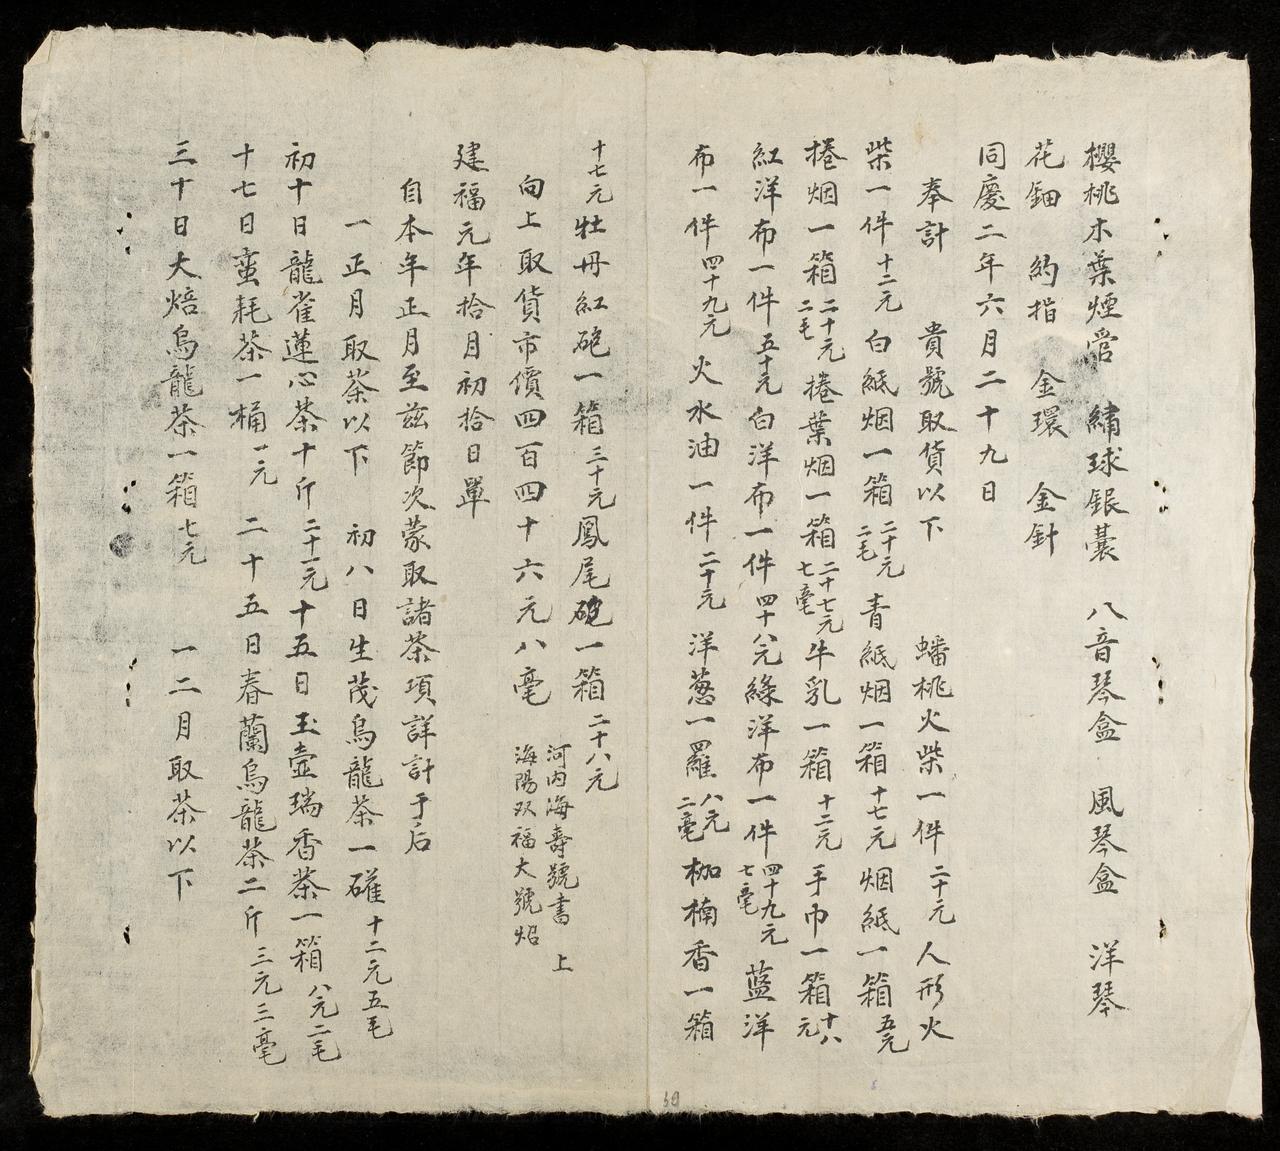 櫻桃木葉煙管 繡球銀囊 八音琴盒 風琴盒 洋琴
花鈿 約指 金環 金針
同慶二年六月二十九日
奉計 貴號取貨以下 蟠桃火柴一件二十元 人形火
柴一件十二元 白紙烟一箱二十元二毛 青紙烟一箱十七元 烟紙一箱五元
捲烟一箱二十元二毛 捲葉烟一箱二十七元七毫 牛乳一箱十二元 手巾一箱十八元
紅洋布一件五十元 白洋布一件四十八元 綠洋布一件四十九元七毫 藍洋
布一件四十九元 火水油一件二十元 洋葱一羅八元二毫 枷楠香一箱
十七元 牡丹紅砲一箱三十元 鳳尾砲一箱二十八元
向上取貨市價四百四十六元八毫 河內海壽號書 上
海陽双福大號炤
建福元年拾月初拾日單
自本年正月至茲節次蒙取諸茶項詳計于后
一正月取茶以下 初八日生茂烏龍茶一礶十二元五毛
初十日龍雀蓮心茶十斤二十一元 十五日玉壺瑞香茶一箱八元二毛
十七日蛮耗茶一桶一元 二十五日春蘭烏龍茶二斤三元三毫
三十日大焙烏龍茶一箱七元 一二月取茶以下
39